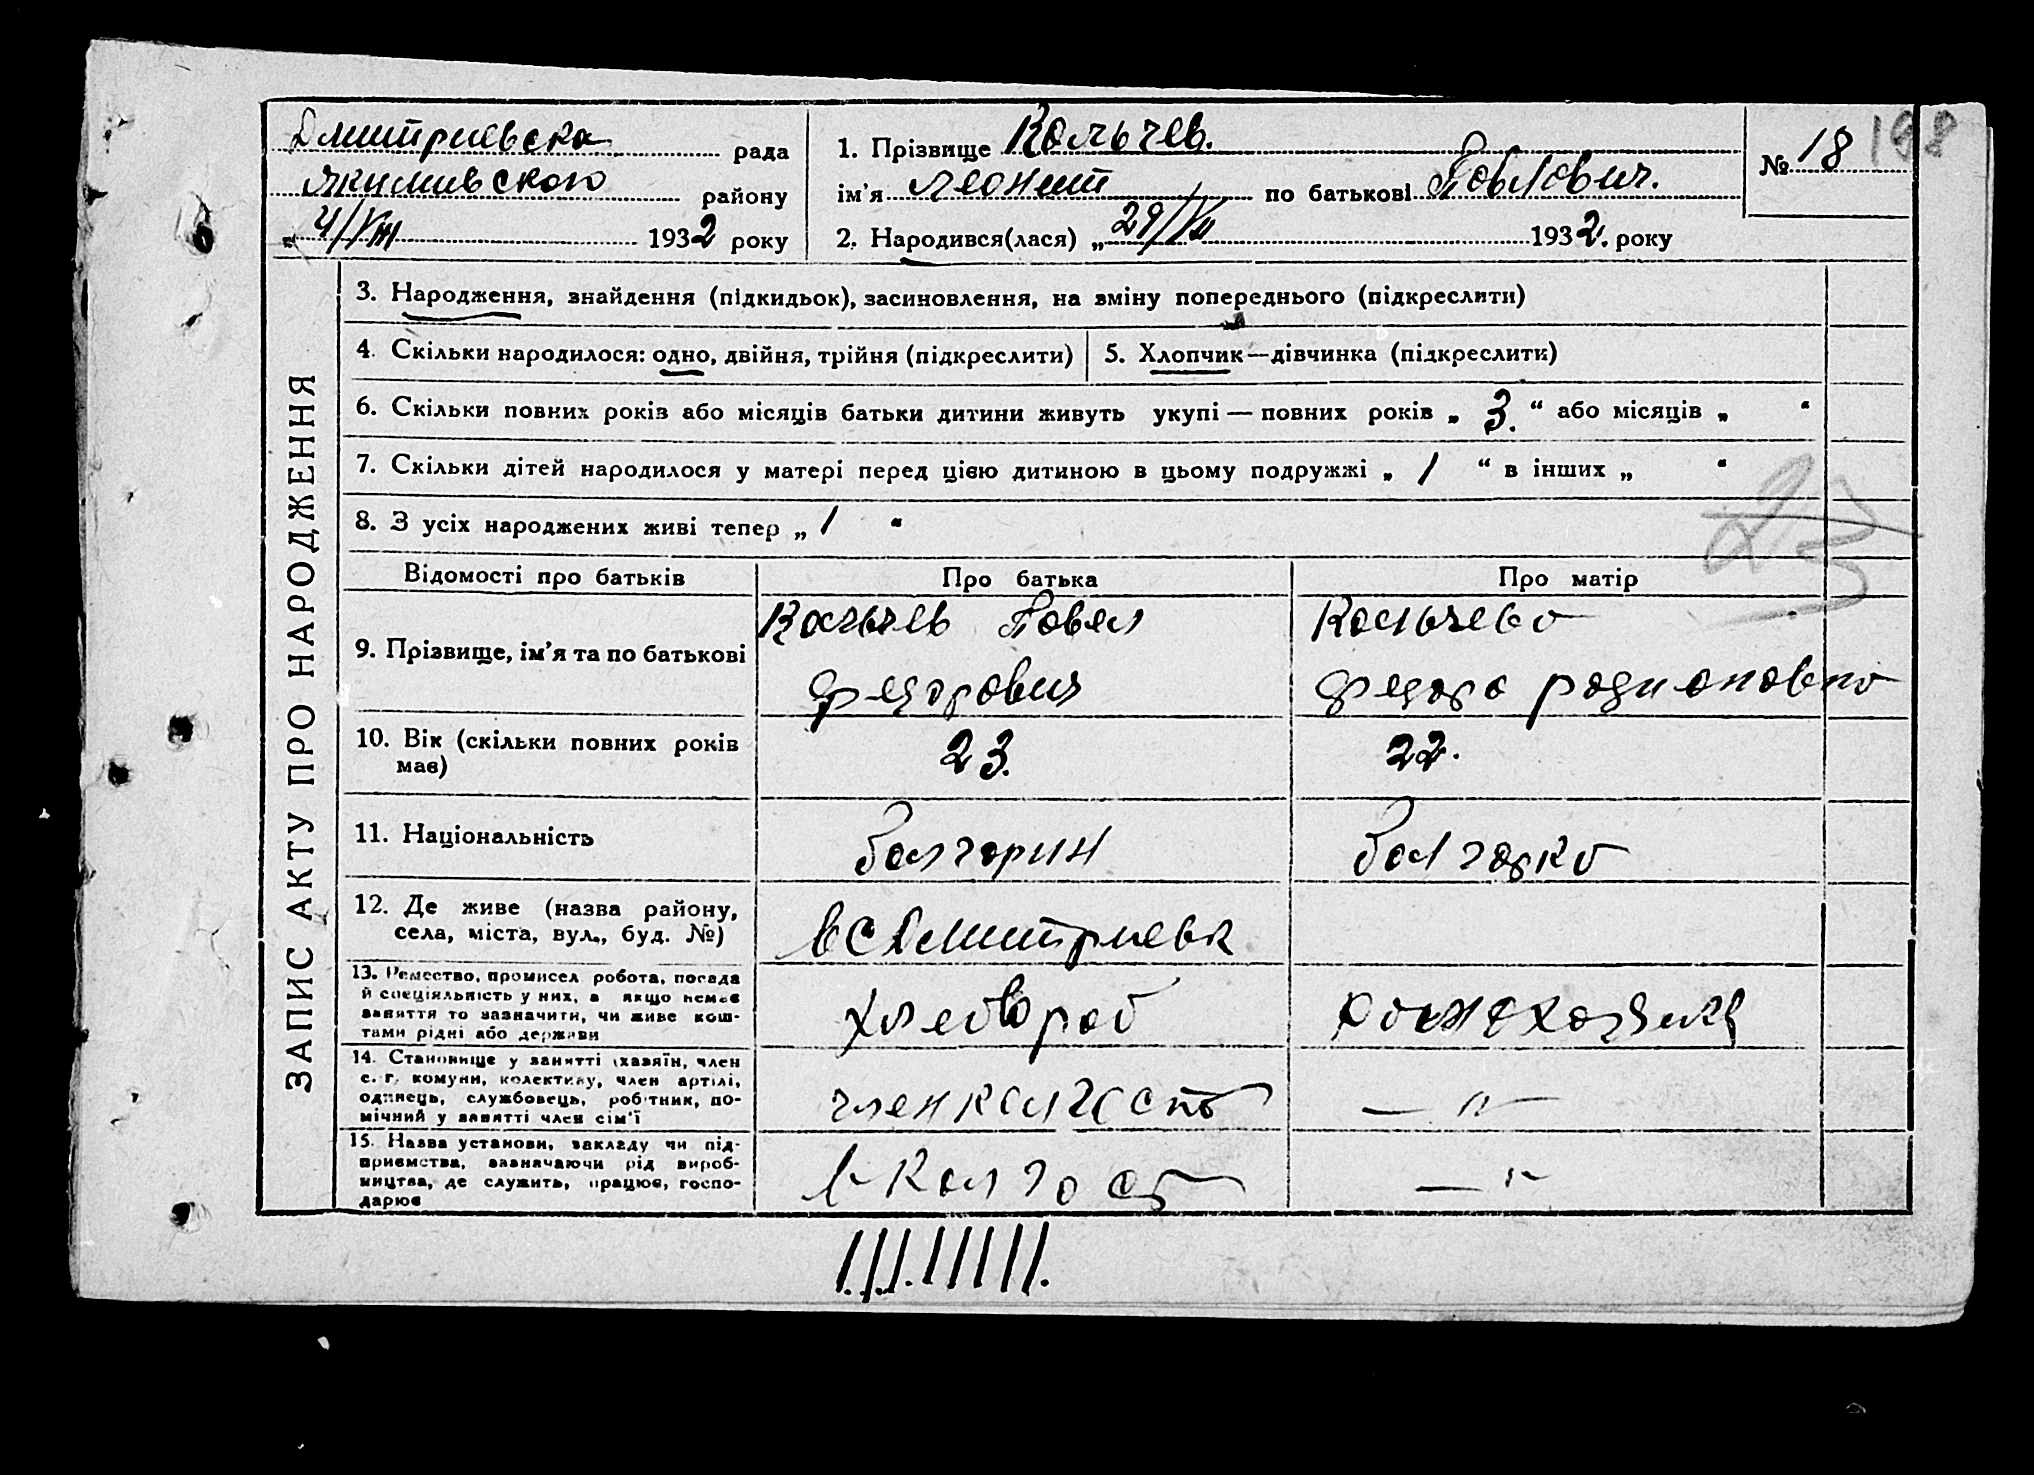 Дмитриевска рада
Якимивского району
„ 4/VIII 1932 року
1. Прізвище Кольчев.
ім'я Леонит по батькові Павлович.
2. Народився(лася) „ 29/VII 1932. року
№ 18
198
ЗАПИС АКТУ ПРО НАРОДЖЕННЯ
3. Народження, знайдення (підкидьок), засиновлення, на зміну попереднього (підкреслити)
4. Скільки народилося: одно, двійня, трійня (підкреслити)
5. Хлопчик—дівчинка (підкреслити)
6. Скільки повних років або місяців батьки дитини живуть укупі — повних років „ 3. “ або місяців „ “
7. Скільки дітей народилося у матері перед цією дитиною в цьому подружжі „ 1 “ в інших „ “
8. З усіх народжених живі тепер „ 1 “
Відомості про батьків Про батька Про матір
9. Прізвище, ім'я та по батькові
Кольчев Павел
Федорович
Кольчева
Федора родионовна
10. Вік (скільки повних років
має)
23.
22.
11. Національність
болгорин
болгарка
12. Де живе (назва району,
села, міста, вул., буд. №)
в с Дмитриевк
13. Ремество, промисел робота, посада
й спеціяльність у них, а якщо немає
заняття то зазначити, чи живе кош-
тами рідні або держави
хлебороб
14. Становище у занятті (хазяїн, член
с.-г. комуни, колективу, член артілі,
одинець, службовець, робітник, по-
мічний у занятті член сім'ї
член колгоспо
— „ —
15. Назва установи, закладу чи під-
приємства, зазначаючи рід вироб-
ництва, де служить, працює, госпо-
дарює
в колгосп
— „ —